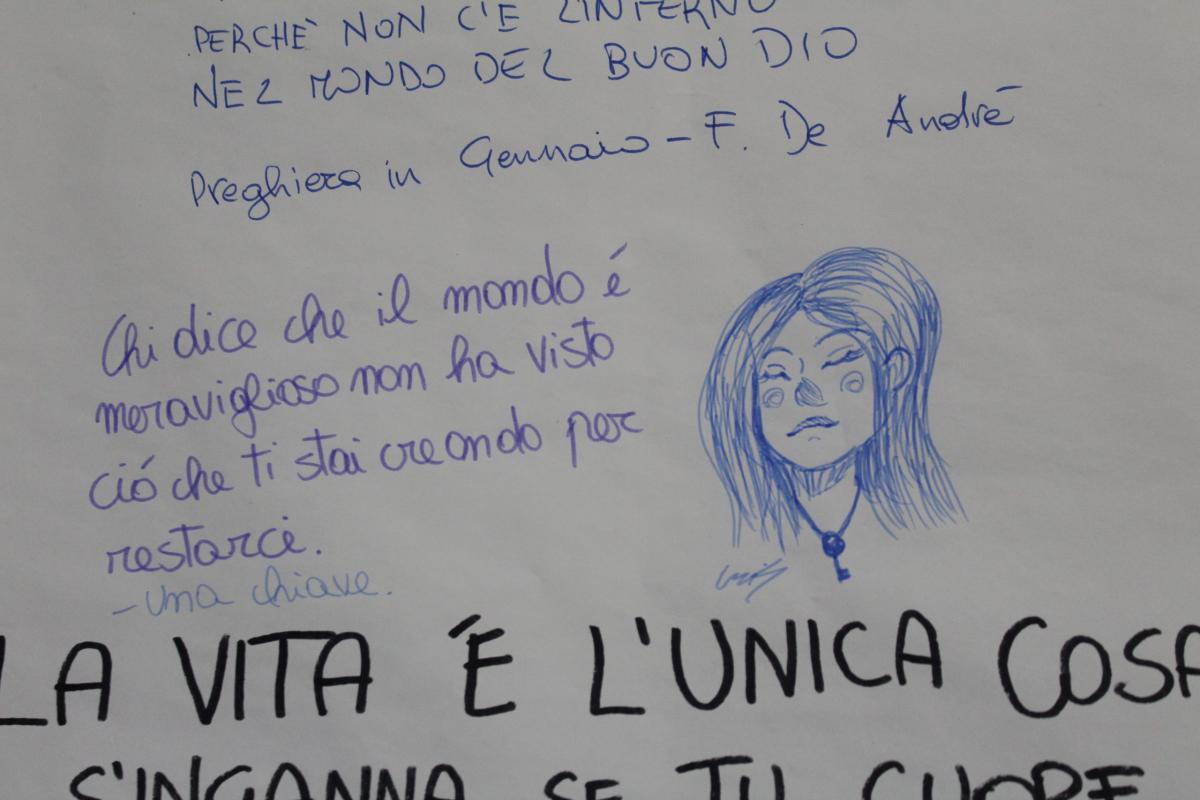 PERCHÈ NON C'E L'INFERNO
NEL MONDO DEL BUON DIO
Preghiera in Gennaio - F. De Andrè
Chi dice che il mondo é
meraviglioso non ha visto
ció che ti stai creando per
restarci.
- una chiave.
LA VITA É L'UNICA COSA
S'INGANNA SE TU CUORE